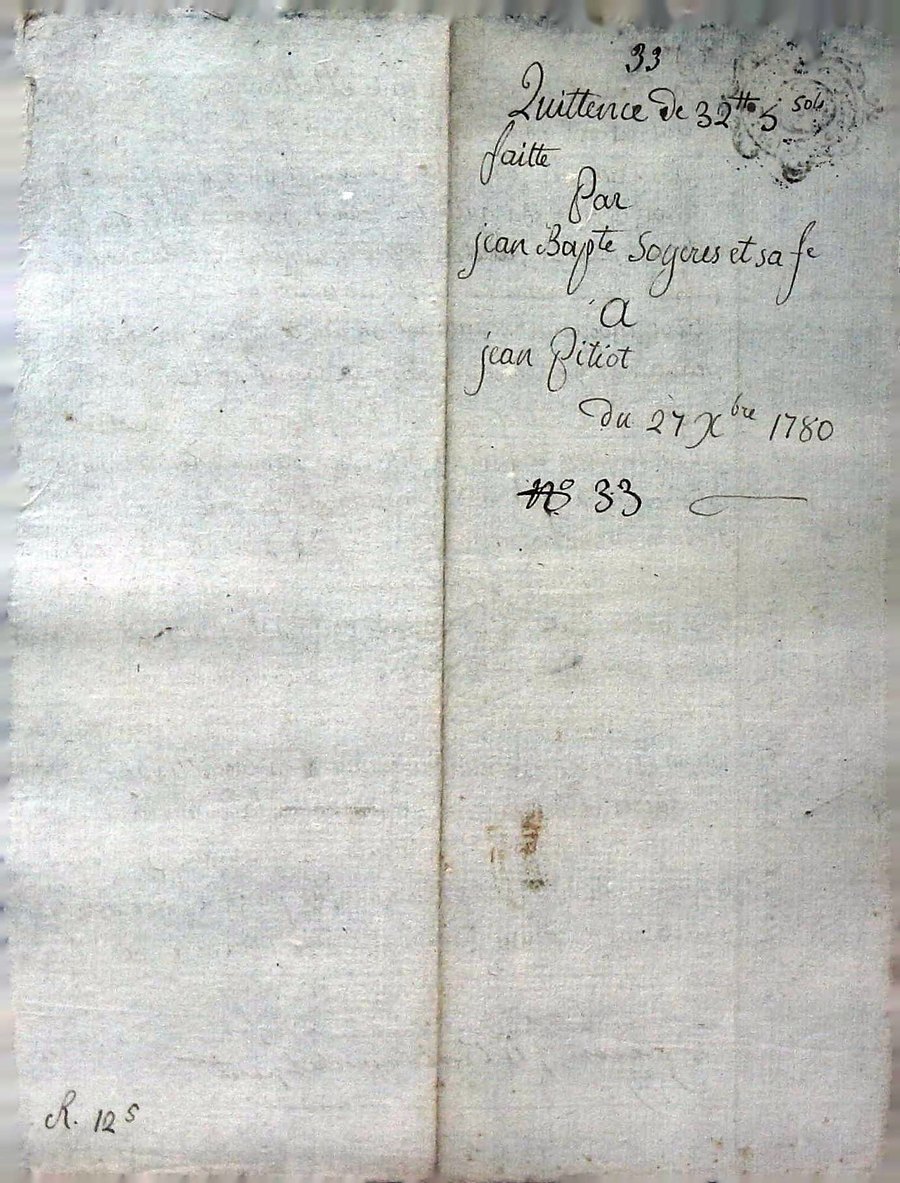 33
Quittence de 32ᵗᵗ 5 sols
faitte
Par
jean Bapte Sogeres et sa fe
A
jean Pitiot
du 27 Xbre 1780
N° 33
R. 12 s